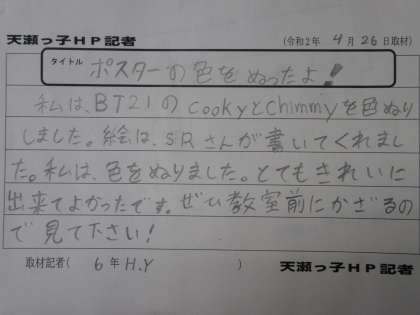 天瀬っ子HP記者 (令和2年 4月 26日取材)
タイトル ポスターの色をぬったよ!
私は、BT21のcookyとchimmyを色ぬり
しました。絵は、S.Rさんが書いてくれまし
た。私は、色をぬりました。とてもきれいに
出来てよかったです。ぜひ教室前にかざるの
で見て下さい!
取材記者( 6年 H.Y ) 天瀬っ子HP記者